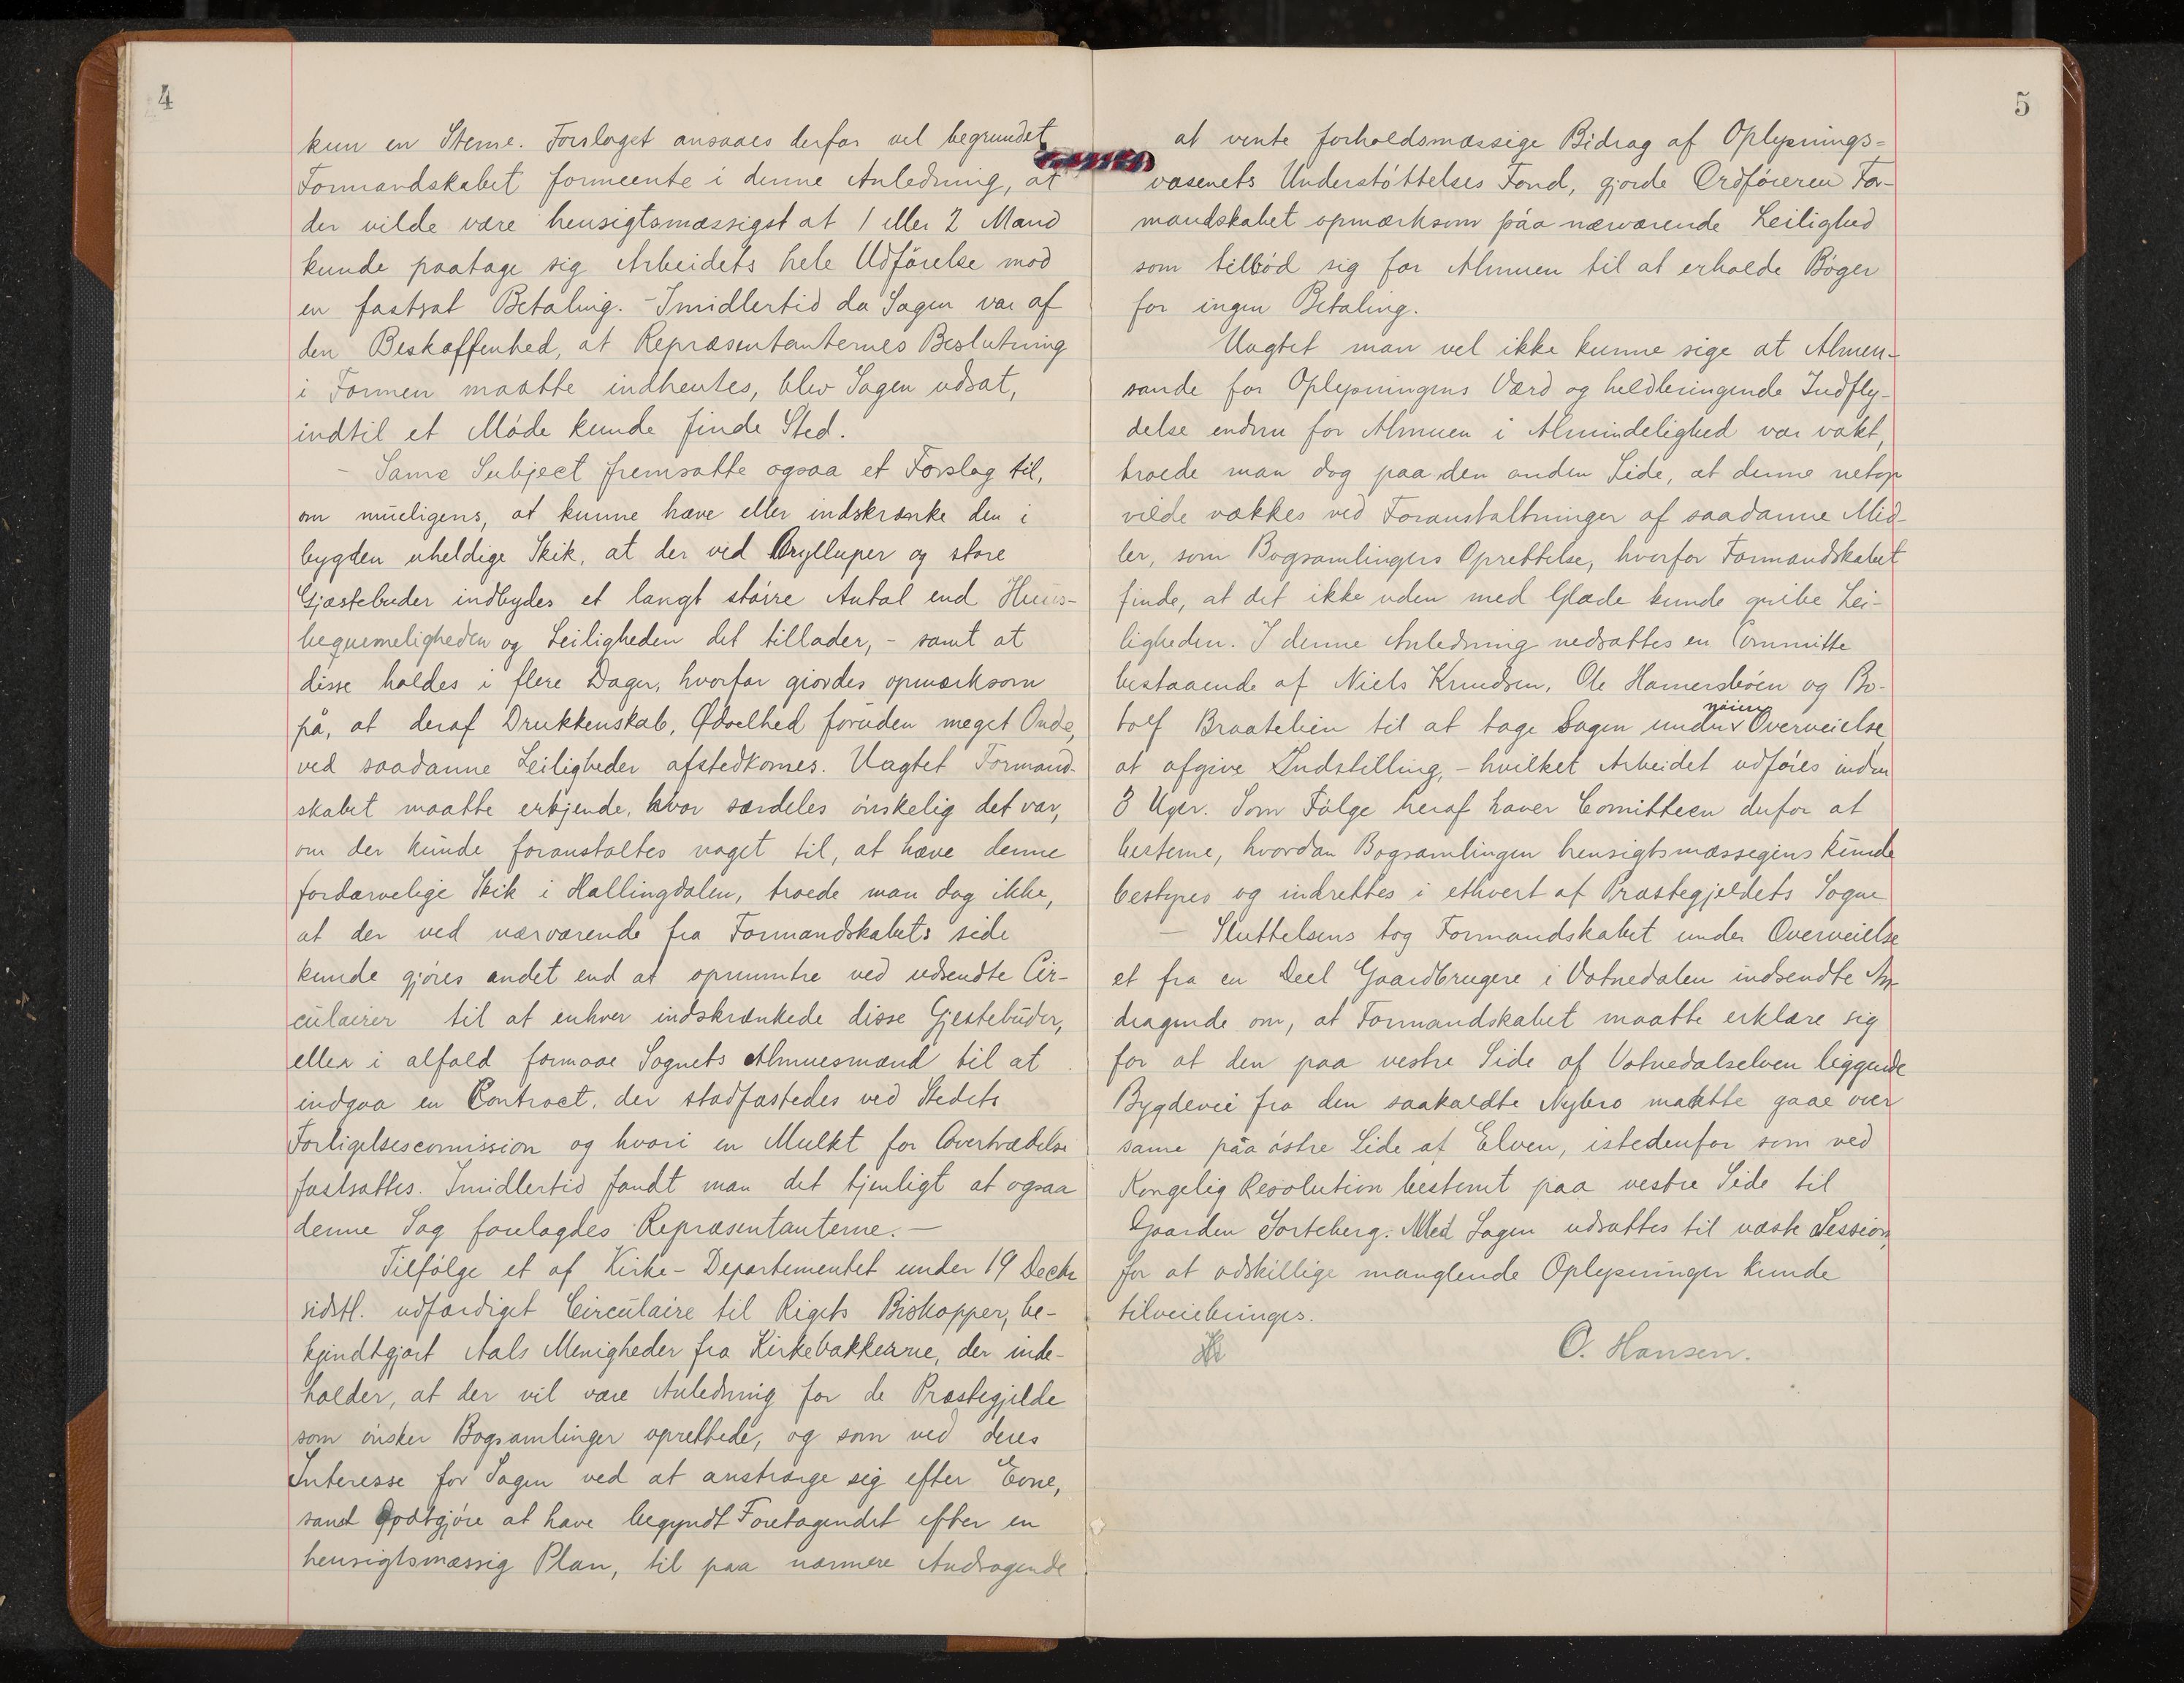 4
kun en Steme. Forslaget ansaaes derfor vel begrundet
Formandskabet formeente i denne Anledning, at
der vilde være hensigtsmæssigst at 1 eller 2 Mand
kunde paatage sig Arbeidets hele Udførelse mod
en fastsat Betaling. - Imidlertid da Sagen var af
den Beskaffenhed, at Repræsentanternes Beslutning
i Formen maatte indhentes, blev Sagen udsat,
indtil et Møde kunde finde Sted.
- Same Subject fremsatte ogsaa et Forslag til,
om mueligens, at kunne hæve eller indskrænke den i
bygden uheldige Skik, at der ved Brylluper og store
Gjæstebuder indbydes et langt større Antal end Huus-
beqvemeligheden og Leiligheden det tillader, - samt at
disse holdes i flere Dager, hvorfor gjordes opmærksom
på, at deraf Drukkenskab, Ødselhed foruden meget Onde,
ved saadanne Leiligheder afstedkomes. Uagtet Formand-
skabet maatte erkjende, hvor særdeles ønskelig det var,
om der kunde foranstaltes noget til, at hæve denne
fordærvelige Skik i Hallingdalen, troede man dog ikke,
at der ved nærværende fra Formandskabets side
kunde gjøres andet end at opmuntre ved udsendte Cir-
culairer til at enhver indskrænkede disse Gjestebuder,
eller i alfald formaae Sognets Almuesmænd til at
indgaa en Contract, der stadfæstedes ved Stedets
Forligelsescomission og hvori en Mulkt for Overtrædelse
fastsattes. Imidlertid fandt man det tjenligt at ogsaa
denne Sag forelagdes Repræsentanterne. -
Tilfølge et af Kirke-Departementet under 19 Decbr
sidstl. udfærdiget Circulaire til Rigets Biskopper, be-
kjendtgjort Aals Menigheder fra Kirkebakkerne, der inde-
holder, at der vil være Anledning for de Præstegjelde
som ønsker Bogsamlinger oprettede, og som ved deres
Interesse for Sagen ved at anstrænge sig efter Evne,
samt godtgjøre at have begyndt Foretagendet efter en
hensigtsmæssig Plan, til paa nærmere Andragende
5
at vente forholdsmæssige Bidrag af Oplysnings=
væsenets Understøttelses Fond, gjorde Ordføreren For-
mandskabet opmærksom paa nærværende Leilighed
som tilbød sig for Almuen til at erholde Bøger
for ingen Betaling.
Uagtet man vel ikke kunne sige at Almen-
sande for Oplysningens Værd og heldbringende Indfly-
delse endnu for Almuen i Almindelighed var vakt,
troede man dog paa den anden Side, at denne netop
vilde vækkes ved Foranstaltninger af saadanne Mid-
ler, som Bogsamlingers Oprettelse, hvorfor Formandskabet
finde, at det ikke uden med Glæde kunde gribe Lei-
ligheden. I denne Anledning nedsattes en Committe
bestaaende af Niels Knudsen, Ole Hamersbøen og Bo-
tolf Braatelien til at tage Sagen under nøiere Overveielse
at afgive Indstilling, - hvilket Arbeidet udføres inden
3 Uger. Som Følge heraf haver Comitteen derfor at
besteme, hvordan Bogsamlingen hensigtsmæssegens kunde
bestyres og indrettes i ethvert af Præstegjeldets Sogne
- Sluttelsens tog Formandskabet under Overveielse
et fra en Deel Gaardbrugere i Votnedalen indsendte An-
dragende om, at Formandskabet maatte erklære sig
for at den paa vestre Side af Votnedalselven liggende
Bygdevei fra den saakaldte Nybro maatte gaae over
same paa østre Side af Elven, istedenfor som ved
Kongelig Resolution bestemt paa vestre Side til
Gaarden Sorteberg. Med Sagen udsattes til næste Session,
for at adskillige manglende Oplysninger kunde
tilveiebringes.
O. Hansen.